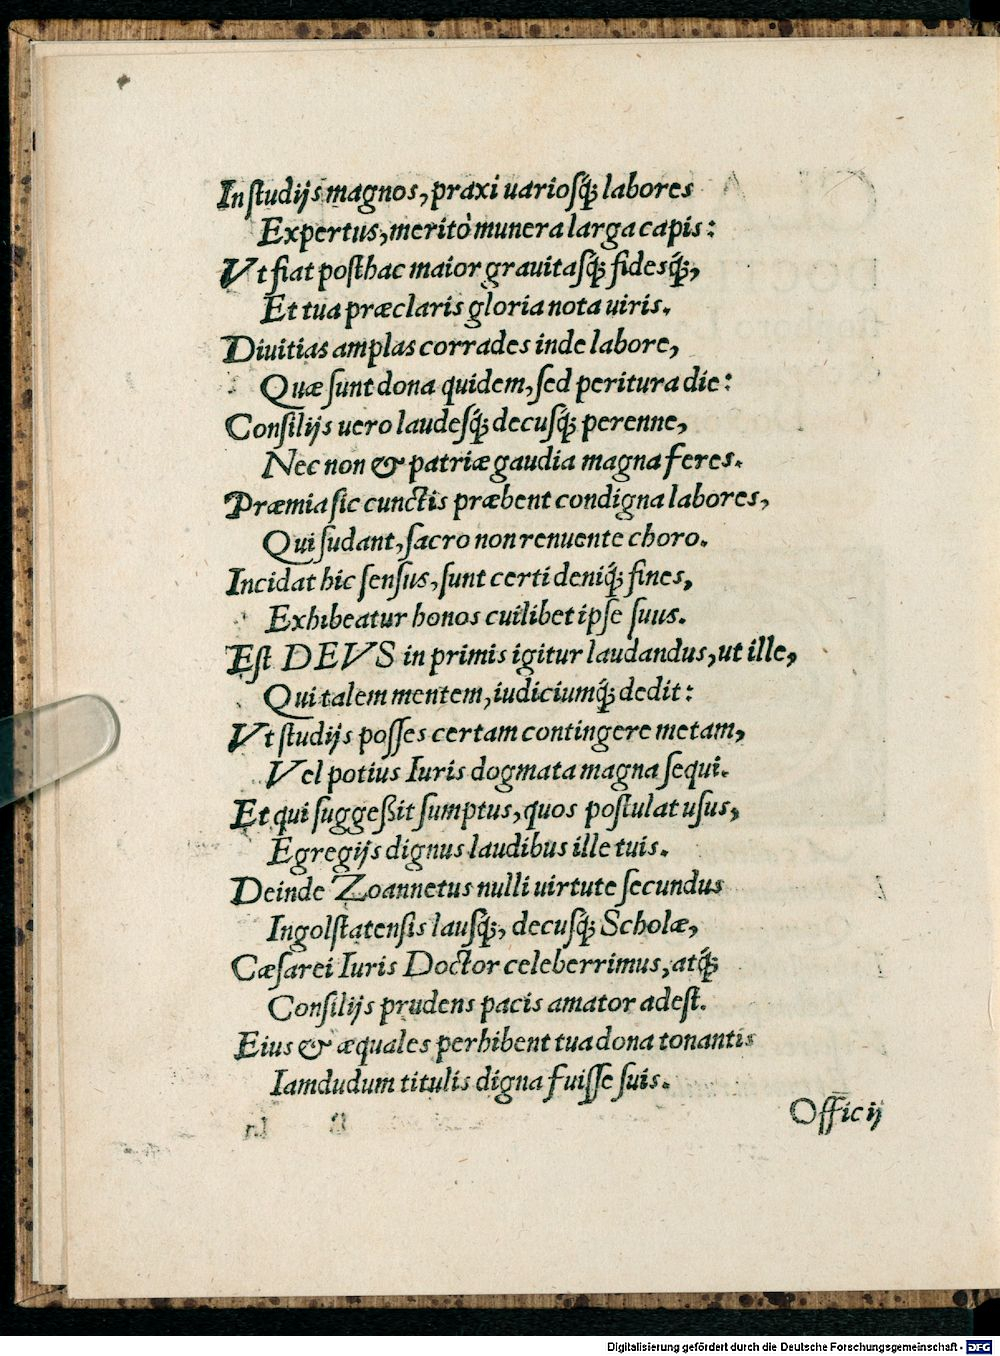 In ſtudijs magnos, praxi uarioſq́; labores
Expertus, meritò munera larga capis:
Vt fiat poſthac maior grauitaſq́; fidesq́;,
Et tua præclaris gloria nota uiris.
Diuitias amplas corrades inde labore,
Quæ ſunt dona quidem, ſed peritura die:
Conſilijs uero laudeſq́; decuſq́; perenne,
Nec non & patriæ gaudia magna feres.
Præmia ſic cunctis præbent condigna labores,
Qui ſudant, ſacro non renuente choro.
Incidat hic ſenſus, ſunt certi deniq́; fines,
Exhibeatur honos cuilibet ipſe ſuus.
Eſt DEVS in primis igitur laudandus, ut ille,
Qui talem mentem, iudiciumq́; dedit:
Vt ſtudijs poſſes certam contingere metam,
Vel potius Iuris dogmata magna ſequi.
Et qui ſuggeßit ſumptus, quos poſtulat uſus,
Egregijs dignus laudibus ille tuis.
Deinde Zoannetus nulli uirtute ſecundus
Ingolſtatenſis lauſq́;, decuſq́; Scholæ,
Cæſarei Iuris Doctor celeberrimus, atq́;
Conſilijs prudens pacis amator adeſt.
Eius & æquales perhibent tua dona tonantis
Iamdudum titulis digna fuiſſe ſuis.
Officij
Digitalisierung gefördert durch die Deutsche Forschungsgemeinschaft - DFG